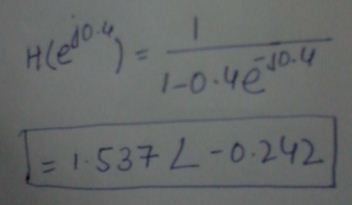 H(e^{j0.4}) = 1 / (1-0.4e^{-j0.4})
= 1.537 ∠ -0.242